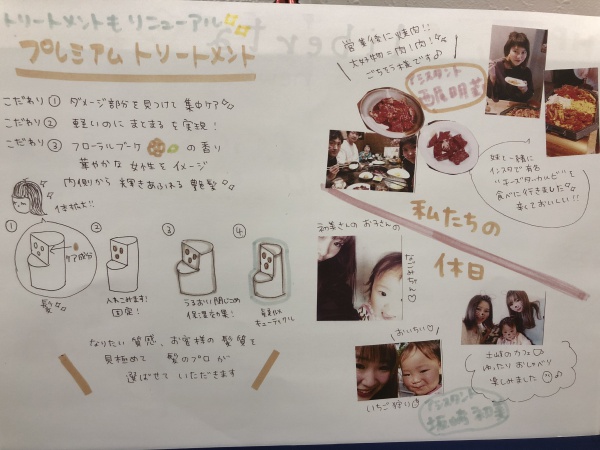 トリートメントも リニューアル
プレミアム トリートメント
こだわり ① ダメージ部分を見つけて 集中ケア
こだわり ② 軽いのに まとまる を実現！
こだわり ③ フローラルブーケ の香り
華やかな 女性を イメージ
内側から 輝きあふれる 艶髪
体験談!!
①
②
③
④
ケア成分
髪
入れこみます!
固定!
うるおい閉じこめ
保湿効果!
キューティクル
なりたい 質感、お客様の 髪質を
見極めて 髪のプロが
選ばせて いただきます
営業後に 焼肉!!
大好物＝肉！肉！
ごちそう様です♪
アシスタント
西尾明莉
妹と一緒に
インスタで有名
"チーズタッカルビ"を
食べに行きました
美しておいしい!!
私たちの
休日
初美さんの お子さんの
なごみちゃん♡
おいちい♡
いちご狩り
土岐のカフェ
ゆったり おしゃべり
楽しみました
アシスタント
坂崎 初美